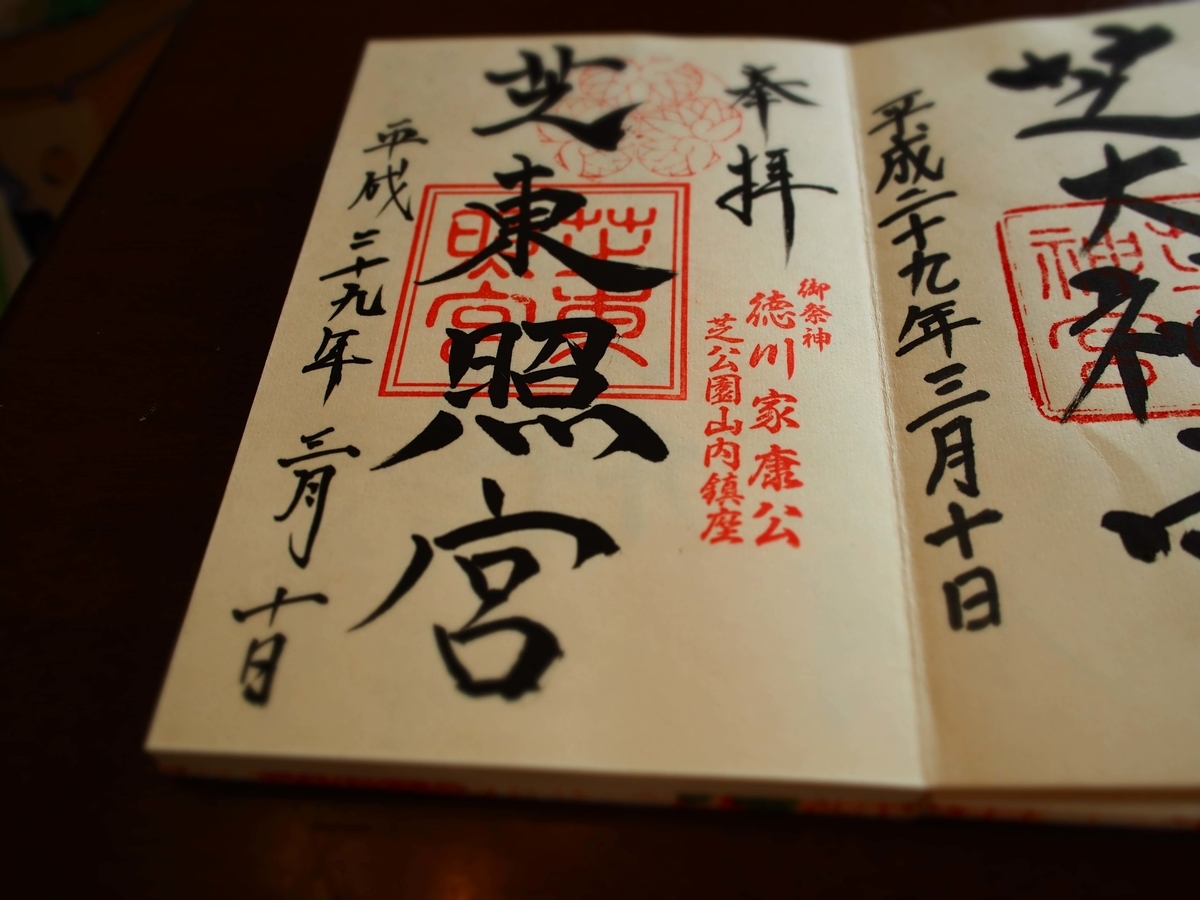 芝大神
神
平成二十九年三月十日
奉拝
御祭神
徳川家康公
芝公園山内鎮座
芝東照宮
芝東照宮
平成二十九年三月十日